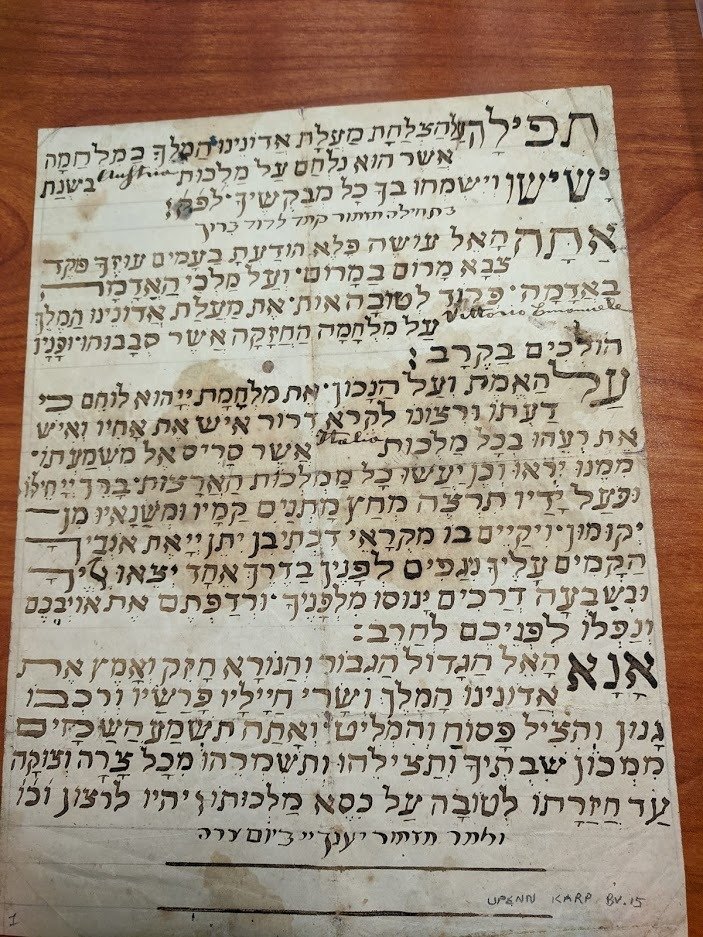 תפילה להצלחת מעלת אדונינו המלך במלחמה
אשר הוא נלחם על מלכות Austria בשנת
ישישו וישמחו בך כל מבקשיך לפק׃
בתחילה מזמור לדוד ברוך
אַתָּה האל עושה פלא הודעת בעמים עוזך פוקד
צבא מרום במרום ועל מלכי האדמה
באדמה פקוד לטובה את מעלת אדונינו המלך
Vittorio Emanuele
על מלחמה החזקה אשר סבבוהו ופניו
הולכים בקרב׃
עַל האמת ועל הנכון את מלחמת ייי הוא לוחם כי
דעתו ורצונו לקרא דרור איש את אחיו ואיש
את רעהו בכל מלכות Italia אשר סריס אל משמעתו
ממנו יראו וכן יעשו כל ממלכות הארצות ברך ייי חילו
ופעל ידיו תרצה מחץ מתנים קמיו ומשנאיו מן
יקומון ויקויים בו מקראי דכתיב יתן ייי את אויביך
הקמים עליך נגפים לפניך בדרך אחד יצאו אליך
ובשבעה דרכים ינוסו מלפניך ורדפתם את אויבכם
ונפלו לפניכם לחרב׃
אָנָא האל הגדול הגבור והנורא חזק ואמץ את
אדונינו המלך ושרי חייליו פרשיו ורכבו
גנון והציל פסוח והמליט ואתה תשמע השמים
ממכון שבתיך ותצילהו ותשמרהו מכל צרה וצוקה
עד חזרתו לטובה על כסא מלכותו יהיו לרצון וכו
ולומר מזמור יענך ייי ביום צרה
UPENN KARP BV.15
1